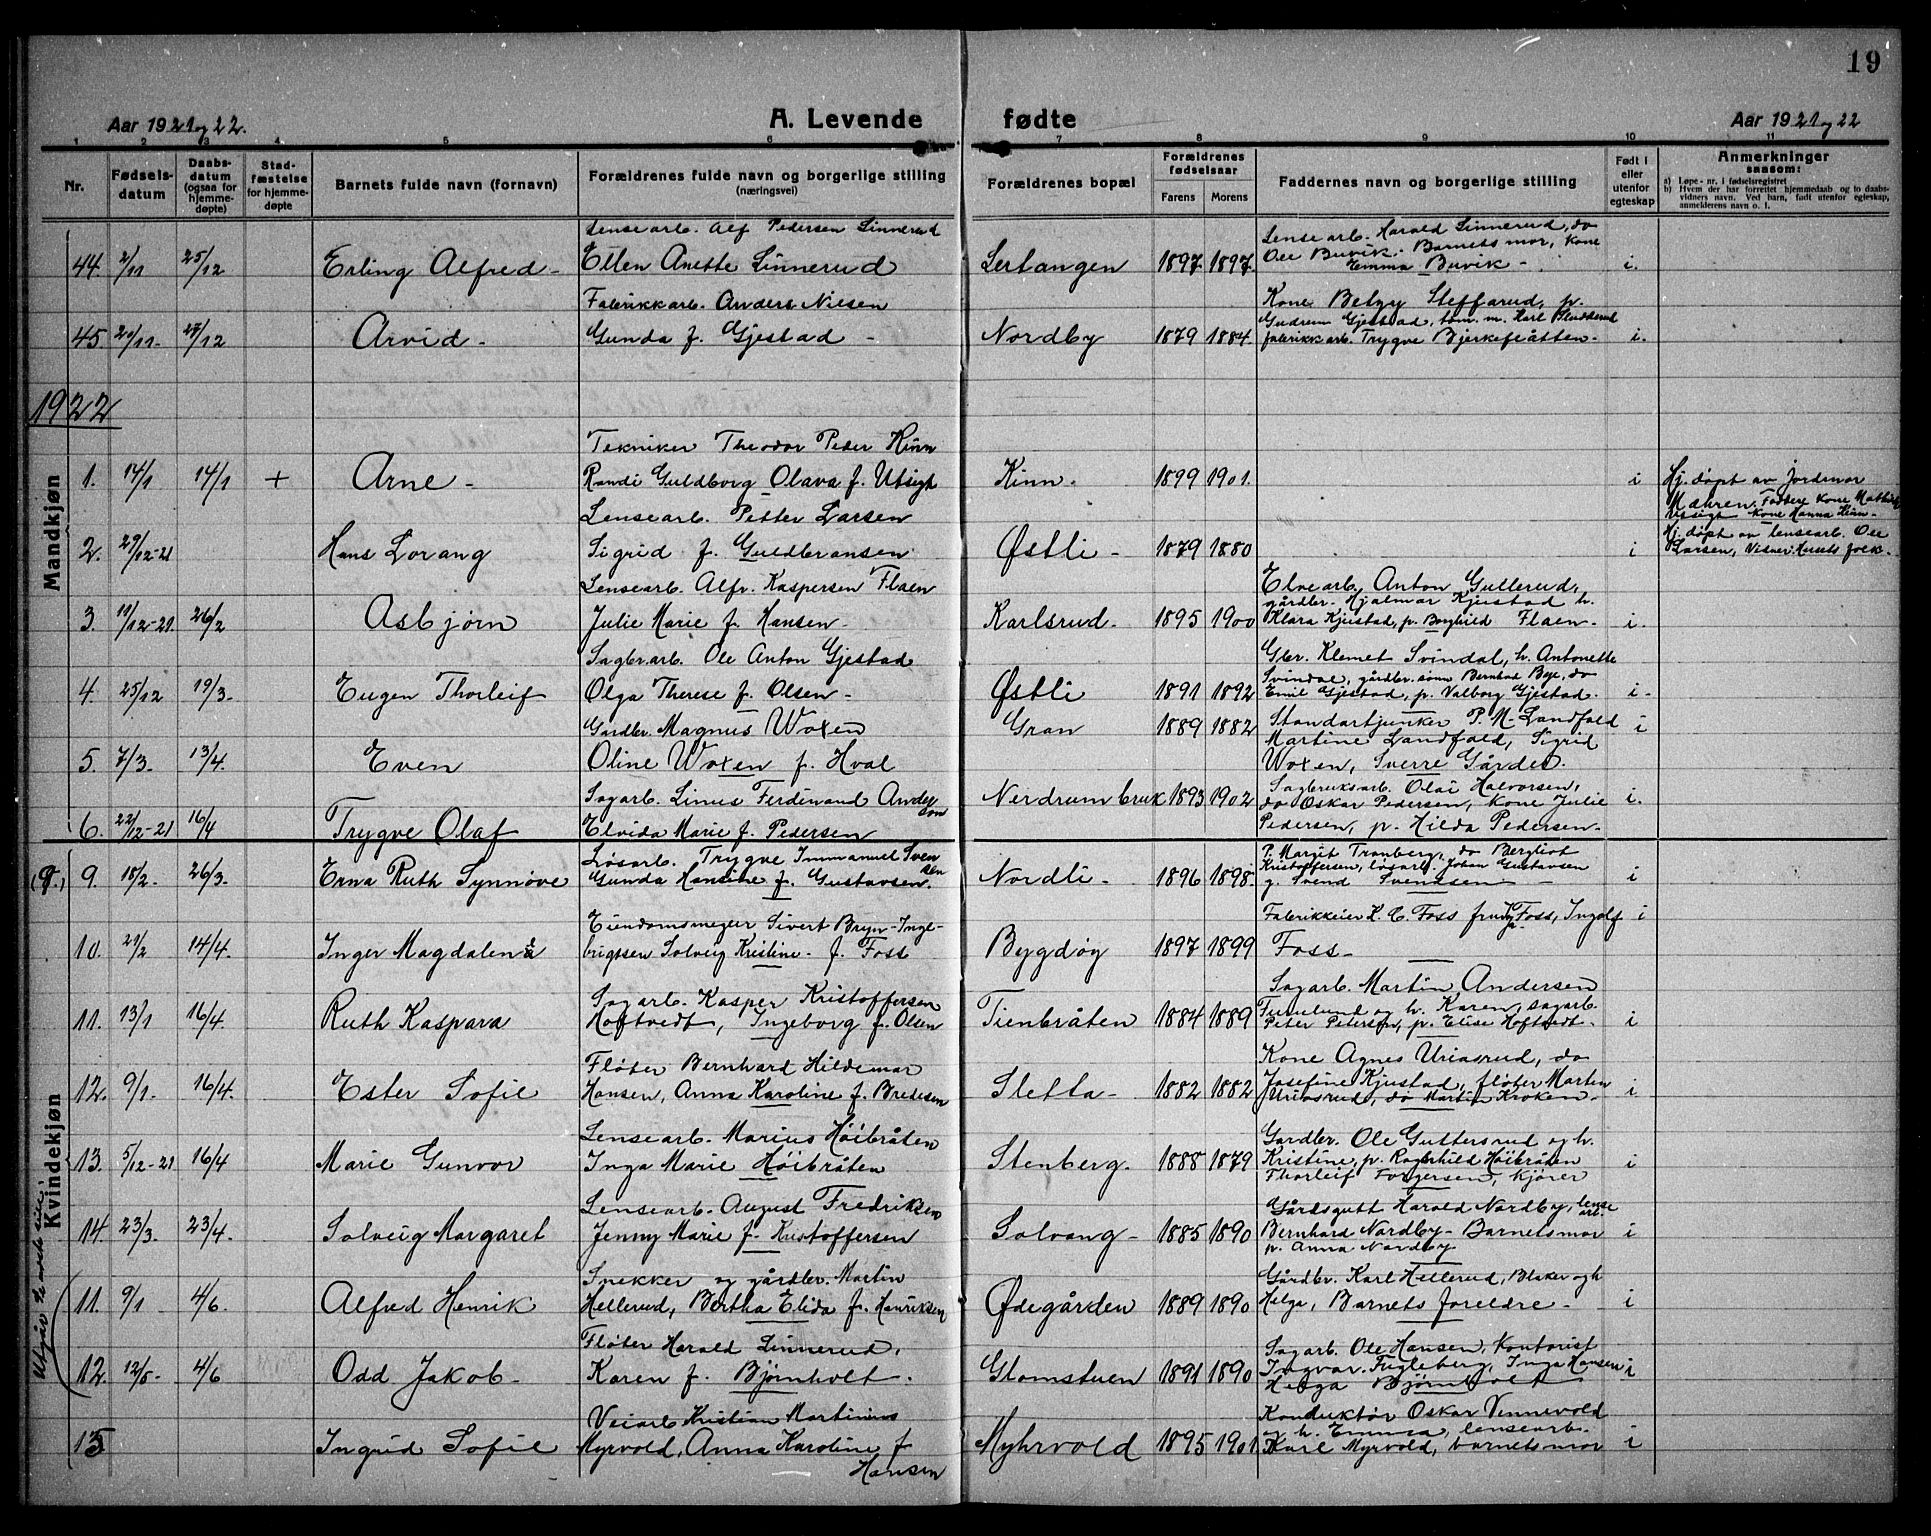 19
Aar 1921 og 22. A. Levende fødte Aar 1921 og 22
1 2 3 4 5 6 7 8 9 10 11
Nr. Fødsels-datum Daabs-datum (ogsaa for hjemme-døpte) Stad-fæstelse for hjemme-døpte Barnets fulde navn (fornavn) Forældrenes fulde navn og borgerlige stilling (næringsvei) Forældrenes bopæl Forældrenes fødselsaar Farens Morens Faddernes navn og borgerlige stilling Født i eller utenfor egteskap Anmerkninger saasom:
a) Løpe-nr. i fødselsregistret
b) Hvem der har forrettet hjemmedaab og to daabs-vidners navn. Ved barn, født utenfor egteskap, anmelderens navn o. l.
Lensearb. Alf Pedersen Linnerud Lensearb. Harald Linnerud, do
44. 2/11 25/12 Erling Alfred - Ellen Anette Linnerud Lertangen 1897 1897. Ole Buvik. Barnets mor, kone Emma Buvik - i.
Fabrikkarb. Anders Nilsen Kone Betzy Steffarud, p.
45 20/11- 27/12 Arvid - Gunda f. Gjestad - Nordby 1879 1884. Gudrun Gjestad, tøm. m. Karl
fabrikkarb. Trygve Bjerkeflåtten - i.
1922
Mandkjøn
Tekniker Theodor Peder Kinn
1. 14/1 14/1 + Arne - Randi Guldborg Olava f. Utsigt Kinn. 1899 1901. i Hj. døpt av jordmor
Mæhren. Faddere Kone Mathilde
Utsigt kone Hanna Kinn -
Lensearb. Petter Larsen
2. 29/12-21 Hans Lorang Sigrid f. Guldbransen Østli - 1879 1880 i Hj. døpt av lensearb. Ole
Larsen, Vitner: Husets folk.
Lensearb. Alfr. Kaspersen Flaen Elvearb. Anton Gullerud,
gårdbr. Hjalmar Kjustad h.
3. 11/12-21. 26/2 Asbjørn Julie Marie f. Hansen - Karlsrud - 1895 1900 Klara Kjustad, p. Borghild Flaen - i.
Sagbr.arb. Ole Anton Gjestad Gbr. Klemet Svindal, h. Antonette
4. 25/12 19/3. Eugen Thorleif Olga Therese f. Olsen - Østli 1891 1892 Svindal, gårdbr. sønn Bernhad Bye, do
Emil Gjestad, p. Valborg Gjestad. i -
Gardbr. Magnus Woxen Gran 1889 1882 Standartjunker P. M. Landfald i
5. 7/3. 13/4. Even Oline Woxen f. Hval Martine Landfald, Sigrid
Woxen, Sverre Gårder.
Sagarb. Linus Ferdinand Anderson Nerdrum bruk 1893 1902 Sagbruksarb. Olai Halvorsen, i.
6. 22/12-21 16/4 Trygve Olaf Elvida Marie f. Pedersen do Oskar Pedersen, kone Julie
Pedersen, p. Hilda Pedersen -
Kvindekjøn
Løsarb. Trygve Immanuel Svendsen P. Margit Tronberg, do Bergliot
9. 18/2. 26/3. Erna Ruth Synnøve Gunda Hansine f. Gustavsen. Nordli - 1896 1898. Kristoffersen, løsarb. Johan Gustavsen i
g. Svend Svendsen -
Eiendomsmegler Sivert Bryn-Inge- Fabrikkeier K. C. Foss frue Foss, Ingolf i
10. 21/2 14/4. Inger Magdalena brigtsen Solveig Kristine - f. Foss Bygdøy 1897 1899 Foss -
Sagarb. Kasper Kristoffersen Sagarb. Martin Andersen
11. 13/1 16/4. Ruth Kaspara Hoftvedt, Ingeborg f. Olsen Tienbråten 1884 1889 og h. Karen, sagarb.
Peter Petersen, p. Elise Hoftvedt - i
Fløter Bernhard Hildemar Kone Agnes Uriasrud, do
12. 9/1. 16/4. Ester Sofie Hansen, Anna Karoline f. Bredesen Sletta - 1882 1882 Josefine Kjustad, fløter Marten i
Uriasrud, do Martin Kroken -
Lensearb. Marius Høibråten Gardbr. Ole Guttersrud og h.
13. 5/12-21 16/4 Marie Gunvor Inga Marie Høibråten Stenberg. 1888 1879 Kristine, p. Ragnhild Høibråten i
Thorleif Torgersen, kjører
Lensearb. August Fredriksen Gårdsgutt Harald Nordby, lense arb.
14. 23/3. 23/4. Solveig Margaret Jenny Marie f. Kristoffersen Solvang - 1885 1890 Bernhard Nordby - Barnets mor i
p. Anna Nordby
Snekker og gårdbr. Martin Gårdbr. Karl Hellerud, Blaker og h
11. 9/1 4/6. Alfred Henrik Hellerud, Bertha Elida f. Henriksen Ødegården 1889 1890 Helga, Barnets foreldre - i
Fløter Harald Linnerud, Sagarb. Ole Hansen, Kontorist
12. 12/5- 4/6 Odd Jakob - Karen f. Bjørnholt. Glomstuen 1891 1890 Ingvar Fugleberg, Inga Hansen i
Helga Bjørnholt
Veiarb Kristian Martinius Konduktør Oskar Vennevold
15 Ingrid Sofie Myrvold, Anna Karoline f Hansen Myhrvold 1895 1901. og h. Emma, lensearb.
Karl Myrvold, barnets mor i